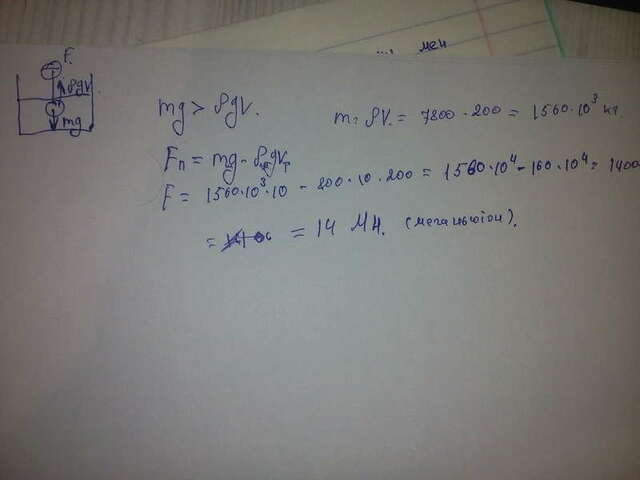 мен
F.
ρgV.
mg
mg > ρgV.
m = ρV. = 7800 · 200 = 1560·10³ кг.
Fп = mg - ρжgVт
F = 1560·10³·10 - 800 · 10 · 200 = 1560·10⁴ - 160·10⁴ = 1400
= = 14 МН. (меганьютон).